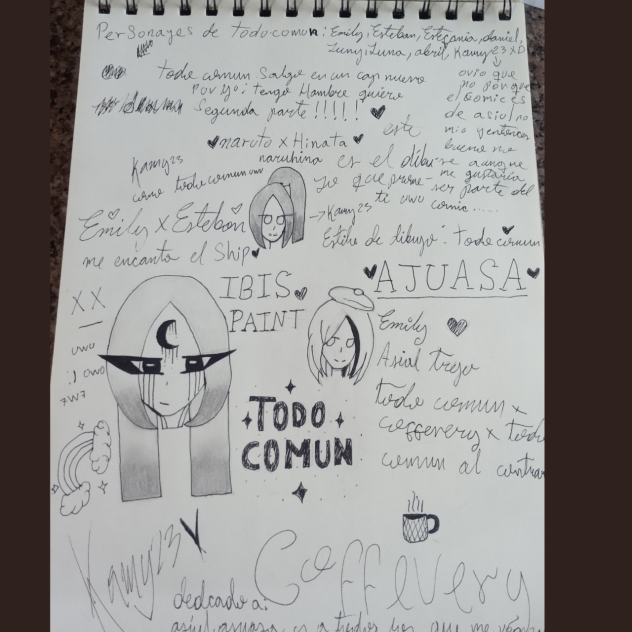 Personajes de todocomun: Emily, Esteban, Estefania, daniel,
Luny, Luna, abril, Kamy23 XD
ovio que
no porque
el comic es
de asiul no
mio
bueno me
aunque
me gustaria
ser parte del
comic.....
todo comun Salgo en un cap nuevo
Por Yo: tengo Hambre quiero
Segunda parte!!!!!
naruto x Hinata
naruhina
este
es el dibu
lo que prome-
ti uwu
Kamy23
como todo comun uwu
→Kamy23
Emily x Esteban
me encanta el Ship
Estilo de dibujo: todo comun
IBIS
PAINT
AJUASA
XX
uwu
:) owo
7w7
Emily
Asial trejo
todo comun x
coffevery x todo
comun al contrar
TODO
COMUN
Kamy23
Coffevery
dedcado a: